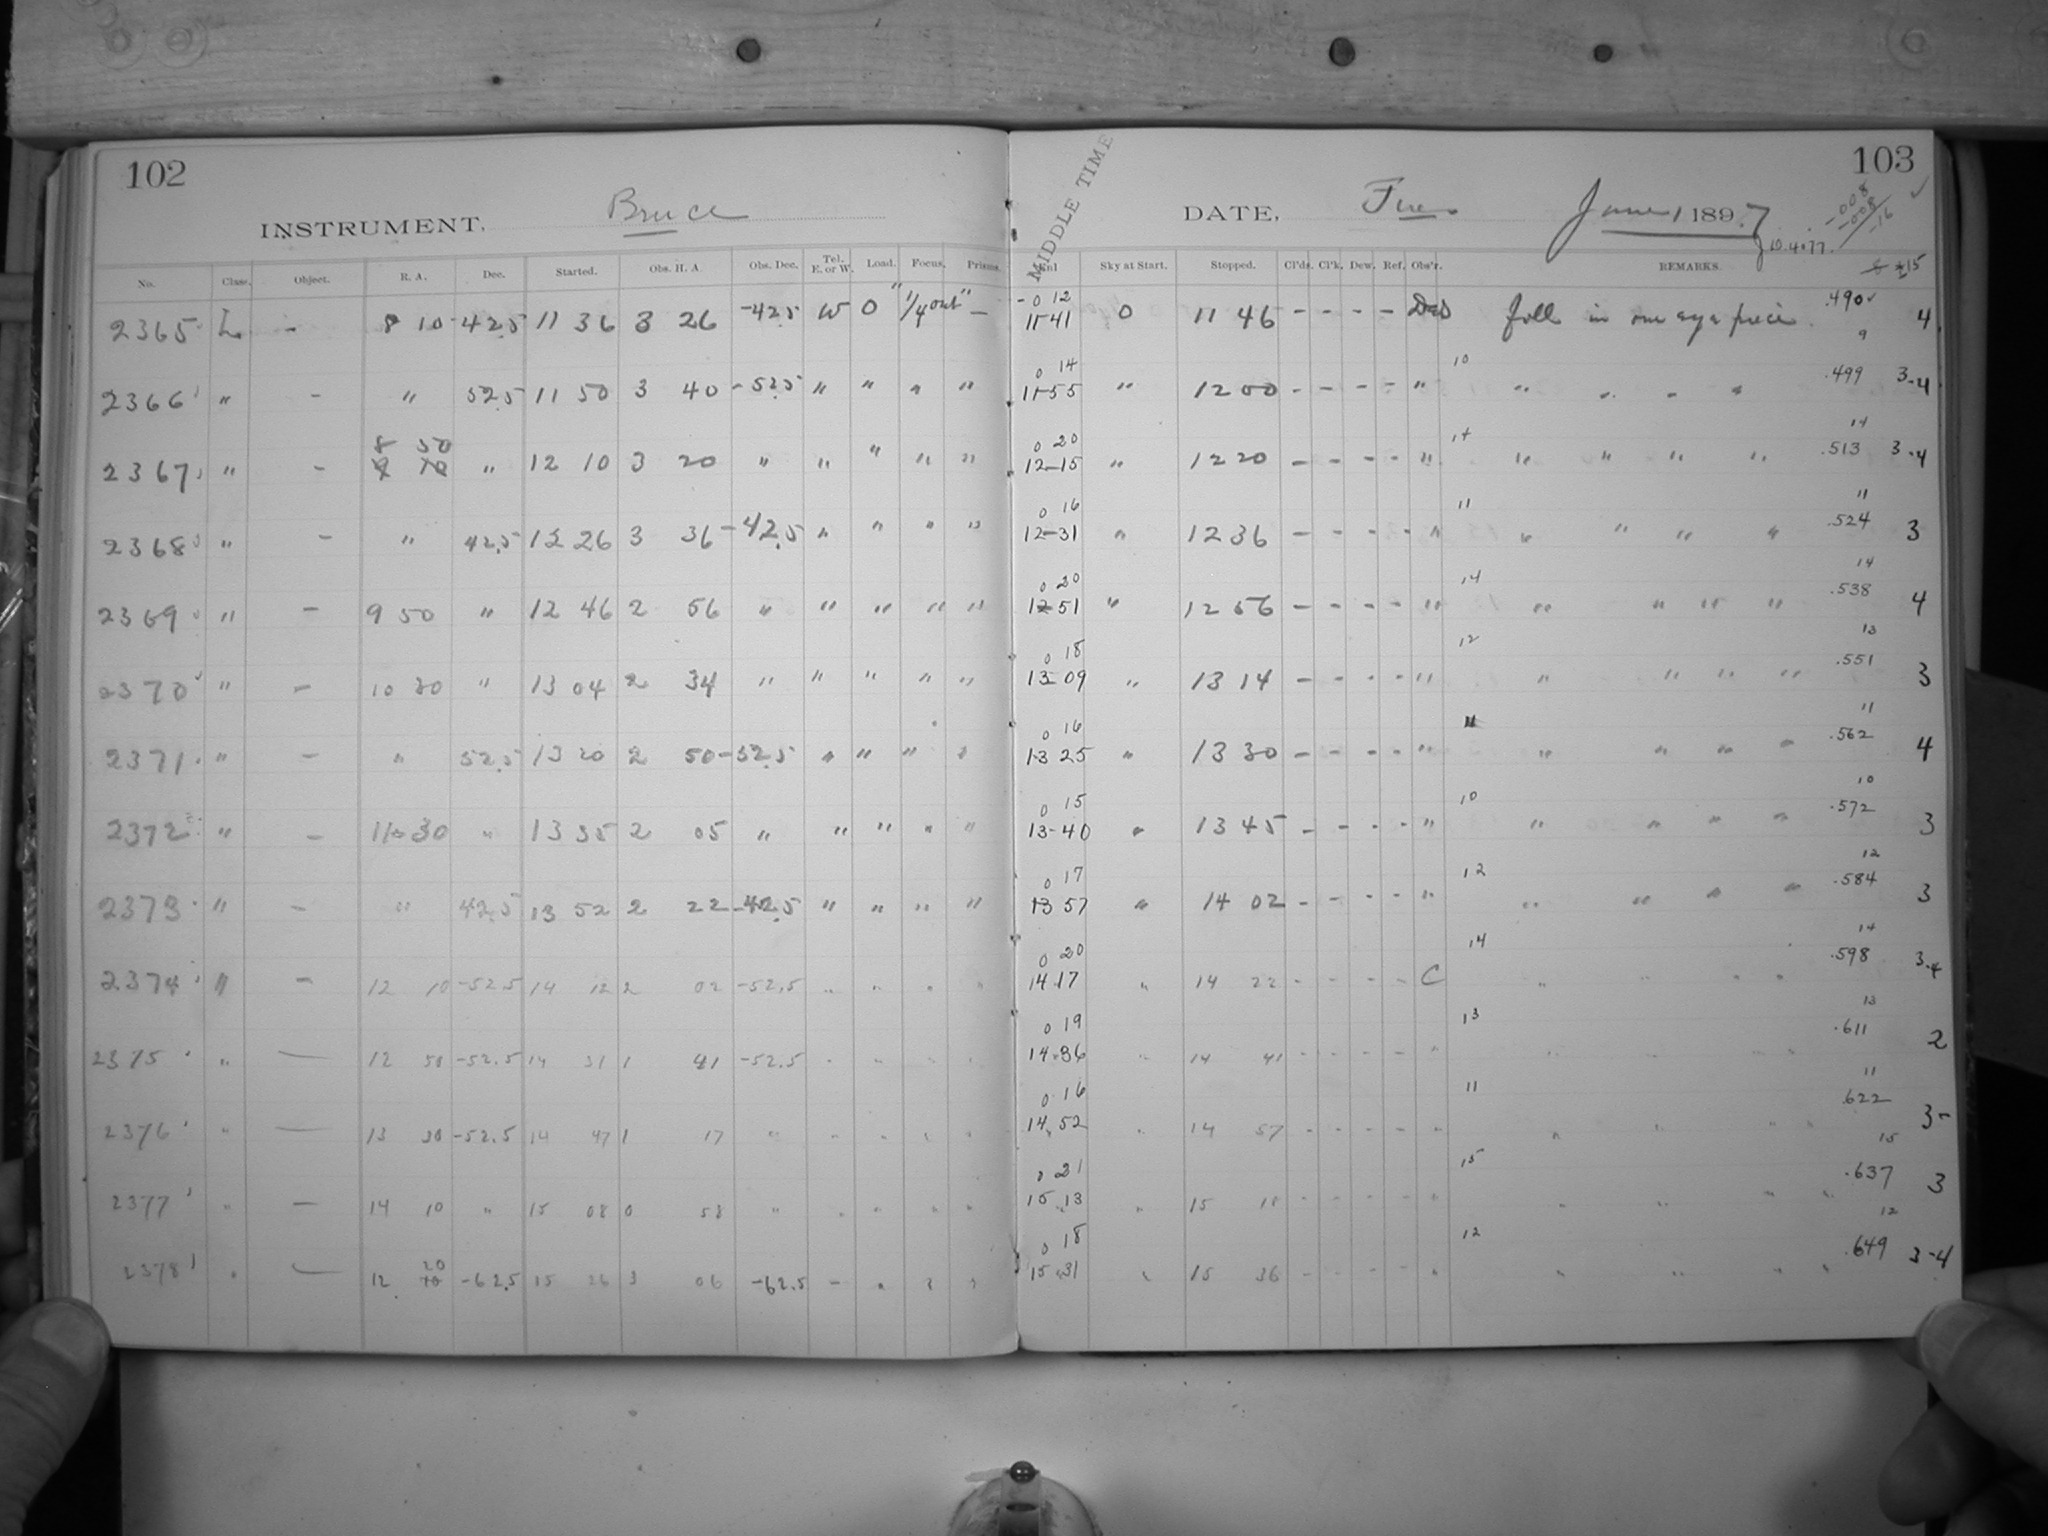 102
INSTRUMENT, Bruce
No. Class. Object. R. A. Dec. Started. Obs. H. A. Obs. Dec. Tel. E. or W. Load. Focus. Prisms.
2365 L - 8 10 -42.5 11 36 3 26 -42.5 W 0 " 1/4 out " -
2366 " - " 52.5 11 50 3 40 -52.5 " " " "
8 50
2367 " - " 12 10 3 20 " " " " "
2368 " - " 42.5 12 26 3 36 -42.5 " " " "
2369 " - 9 50 " 12 46 2 56 " " " " "
2370 " - 10 30 " 13 04 2 34 " " " " "
2371 " - " 52.5 13 20 2 50 -52.5 " " " "
2372 " - 11 30 " 13 35 2 05 " " " " "
2373 " - " 42.5 13 52 2 22 -42.5 " " " "
2374 " - 12 10 -52.5 14 12 2 02 -52.5 " " " "
2375 " - 12 50 -52.5 14 31 1 41 -52.5 " " " "
2376 " - 13 30 -52.5 14 47 1 17 " " " " "
2377 " - 14 10 " 15 08 0 58 " " " " "
20
2378 " - 12 10 -62.5 15 26 3 06 -62.5 - " " "
103
MIDDLE TIME
DATE, Tues. June 1 1897
-008
-008
-16
10.4177.
Sky at Start. Stopped. Cl'ds. Cl'k. Dew. Ref. Obs'r. REMARKS.
-0 12 .490
11-41 0 11 46 - - - - foll in one eye piece. 4
9
0 14 10 .499
11-55 " 12 00 - - - - " " " " " 3-4
14
0 20 14 .513
12-15 " 12 20 - - - - " " " " " 3-4
11
0 16 11 .524
12-31 " 12 36 - - - - " " " " " 3
14
0 20 14 .538
12 51 " 12 56 - - - - " " " " " 4
13
0 18 12 .551
13-09 " 13 14 - - - - " " " " " 3
11
0 16 11 .562
13 25 " 13 30 - - - - " " " " " 4
10
0 15 10 .572
13-40 " 13 45 - - - - " " " " " 3
12
0 17 12 .584
13 57 " 14 02 - - - - " " " " " 3
14
0 20 14 .598
14.17 " 14 22 - - - - C " " " " 3-4
13
0 19 13 .611
14.36 " 14 41 - - - - " " " " " 2
11
0 16 11 .622
14.52 " 14 57 - - - - " " " " " 3-
15
0 21 15 .637
15.13 " 15 18 - - - - " " " " " 3
12
0 18 12 .649
15.31 " 15 36 - - - - " " " " " 3-4